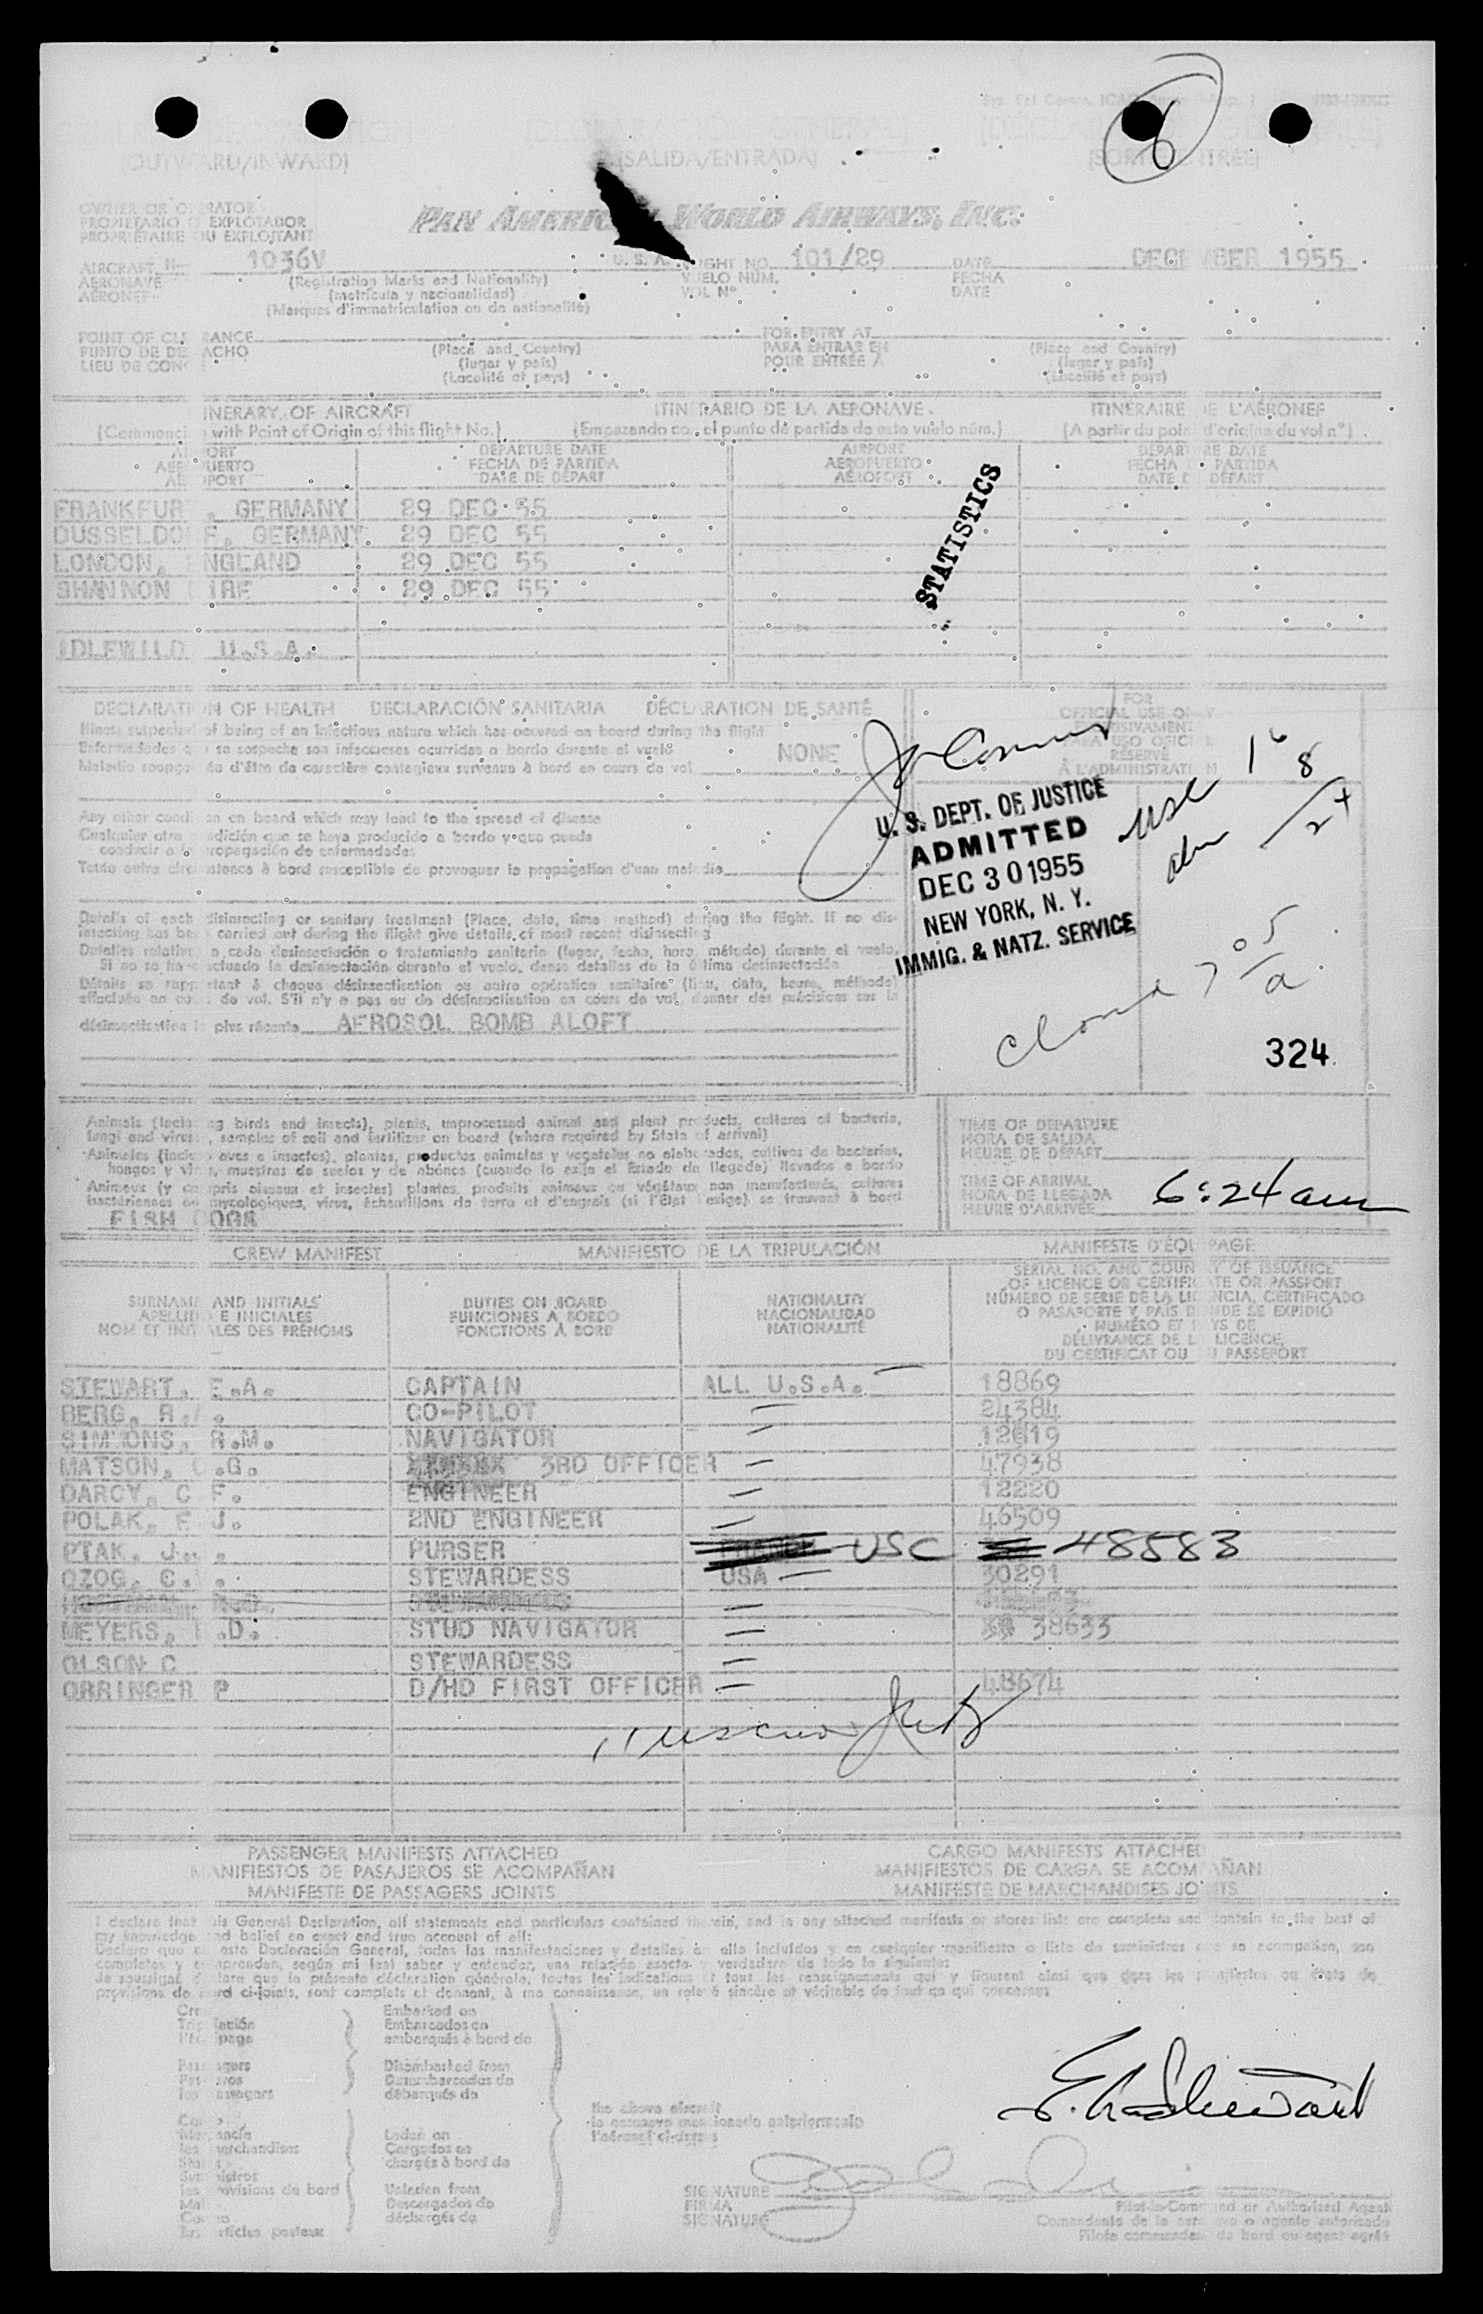 6
(OUTWARD/INWARD) (SALIDA/ENTRADA) (SORTIE/ENTRÉE)
OWNER OR OPERATOR
PROPIETARIO O EXPLOTADOR
PROPRIÉTAIRE OU EXPLOITANT
PAN AMERICAN WORLD AIRWAYS, INC.
AIRCRAFT 1036V U.S.A. FLIGHT NO. 101/29 DATE DECEMBER 1955
AERONAVE (Registration Marks and Nationality) VUELO NÚM. FECHA
AÉRONEF (matrícula y nacionalidad) VOL Nº DATE
(Marques d'immatriculation ou de nationalité)
POINT OF CLEARANCE FOR ENTRY AT
PUNTO DE DESPACHO (Place and Country) PARA ENTRAR EN (Place and Country)
LIEU DE CONGÉ (lugar y país) POUR ENTRÉE À (lugar y país)
(Localité et pays) (Localité et pays)
ITINERARY OF AIRCRAFT ITINERARIO DE LA AERONAVE ITINÉRAIRE DE L'AÉRONEF
(Commencing with Point of Origin of this flight No.) (Empezando con el punto de partida de este vuelo núm.) (A partir du point d'origine du vol nº)
AIRPORT DEPARTURE DATE AIRPORT DEPARTURE DATE
AEROPUERTO FECHA DE PARTIDA AEROPUERTO FECHA DE PARTIDA
AÉROPORT DATE DE DÉPART AÉROPORT DATE DE DÉPART
FRANKFURT, GERMANY 29 DEC 55
DUSSELDORF, GERMANY. 29 DEC 55
LONDON, ENGLAND 29 DEC 55
SHANNON EIRE 29 DEC 55
IDLEWILD U.S.A.
STATISTICS
DECLARATION OF HEALTH DECLARACIÓN SANITARIA DÉCLARATION DE SANTÉ
Illness suspected of being of an infectious nature which has occured on board during the flight
Enfermedades que se sospecha son infecciosas ocurridas a bordo durante el vuelo NONE
Maladie soupçonnée d'être de caractère contagieux survenue à bord en cours de vol
FOR
OFFICIAL USE ONLY
EXCLUSIVAMENTE
PARA USO OFICIAL
RÉSERVÉ
À L'ADMINISTRATION
U. S. DEPT. OF JUSTICE
ADMITTED
DEC 30 1955
NEW YORK, N. Y.
IMMIG. & NATZ. SERVICE
Any other condition on board which may lead to the spread of disease
Cualquier otra condición que se haya producido a bordo y que pueda
conducir a la propagación de enfermedades
Toute autre circonstance à bord susceptible de provoquer la propagation d'une maladie
Details of each disinsecting or sanitary treatment (Place, date, time method) during the flight. If no dis-
insecting has been carried out during the flight give details of most recent disinsecting
Detalles relativos a cada desinsectación o tratamiento sanitario (lugar, fecha, hora, método) durante el vuelo.
Si no se ha efectuado la desinsectación durante el vuelo, dense detalles de la última desinsectación
Détails se rapportant à chaque désinsectisation ou autre opération sanitaire (lieu, date, heure, méthode)
effectuée en cours de vol. S'il n'y a pas eu de désinsectisation en cours de vol, donner des précisions sur la
désinsectisation la plus récente AEROSOL BOMB ALOFT
324
Animals (including birds and insects), plants, unprocessed animal and plant products, cultures of bacteria,
fungi and viruses, samples of soil and fertilizer on board (where required by State of arrival)
Animales (incluso aves e insectos), plantas, productos animales y vegetales no elaborados, cultivos de bacterias,
hongos y virus, muestras de suelos y de abonos (cuando lo exija el Estado de llegada) llevados a bordo
Animaux (y compris oiseaux et insectes) plantes, produits animaux ou végétaux non manufacturés, cultures
bactériennes ou mycologiques, virus, échantillons de terre et d'engrais (si l'État l'exige) se trouvant à bord
FISH DOGS
TIME OF DEPARTURE
HORA DE SALIDA
HEURE DE DÉPART
TIME OF ARRIVAL
HORA DE LLEGADA 6:24 am
HEURE D'ARRIVÉE
CREW MANIFEST MANIFIESTO DE LA TRIPULACIÓN MANIFESTE D'ÉQUIPAGE
SERIAL NO. AND COUNTRY OF ISSUANCE
OF LICENCE OR CERTIFICATE OR PASSPORT
SURNAME AND INITIALS DUTIES ON BOARD NATIONALITY NÚMERO DE SERIE DE LA LICENCIA, CERTIFICADO
APELLIDO E INICIALES FUNCIONES A BORDO NACIONALIDAD O PASAPORTE Y PAÍS DONDE SE EXPIDIÓ
NOM ET INITIALES DES PRÉNOMS FONCTIONS À BORD NATIONALITÉ NUMÉRO ET PAYS DE
DÉLIVRANCE DE LA LICENCE,
DU CERTIFICAT OU DU PASSEPORT
STEWART, E.A. CAPTAIN ALL U.S.A. 18869
BERG, R. CO-PILOT 24384
SIMMONS, R.M. NAVIGATOR 12619
MATSON, .G. 3RD OFFICER 47938
DARCY, C F. ENGINEER 12220
POLAK, E J. 2ND ENGINEER 46509
PTAK, J. PURSER USC 48583
OZOG, C. STEWARDESS USA 30291
MEYERS, .D. STUD NAVIGATOR 38633
OLSON C STEWARDESS
ORRINGER P D/HD FIRST OFFICER 48674
PASSENGER MANIFESTS ATTACHED CARGO MANIFESTS ATTACHED
MANIFIESTOS DE PASAJEROS SE ACOMPAÑAN MANIFIESTOS DE CARGA SE ACOMPAÑAN
MANIFESTE DE PASSAGERS JOINTS MANIFESTE DE MARCHANDISES JOINTS
I declare that this General Declaration, all statements and particulars contained therein, and in any attached manifests or stores lists are complete and contain to the best of
my knowledge and belief an exact and true account of all:
Declaro que en esta Declaración General, todas las manifestaciones y detalles en ella incluidos y en cualquier manifiesto o lista de suministros que se acompañan, son
completos y comprenden, según mi leal saber y entender, una relación exacta y verdadera de todo lo siguiente:
Je soussigné déclare que la présente déclaration générale, toutes les indications et tous les renseignements qui y figurent ainsi que dans les manifestes ou états de
provisions de bord ci-joints, sont complets et donnent, à ma connaissance, un relevé sincère et véritable de tout ce qui concerne:
Crew Embarked on
Tripulación Embarcados en
l'équipage embarqués à bord de
Passengers Disembarked from
Pasajeros Desembarcados de
les passagers débarqués de
the above aircraft
la aeronave mencionada anteriormente
l'aéronef ci-dessus
Cargo
Mercancía Laden on
les marchandises Cargados en
Stores chargés à bord de
Suministros
les provisions de bord Unladen from
Mail Descargados de
Correo déchargés de
les articles postaux
E. A. Stewart
SIGNATURE
FIRMA
SIGNATURE
Pilot-in-Command or Authorized Agent
Comandante de la aeronave o agente autorizado
Pilote commandant de bord ou agent agréé